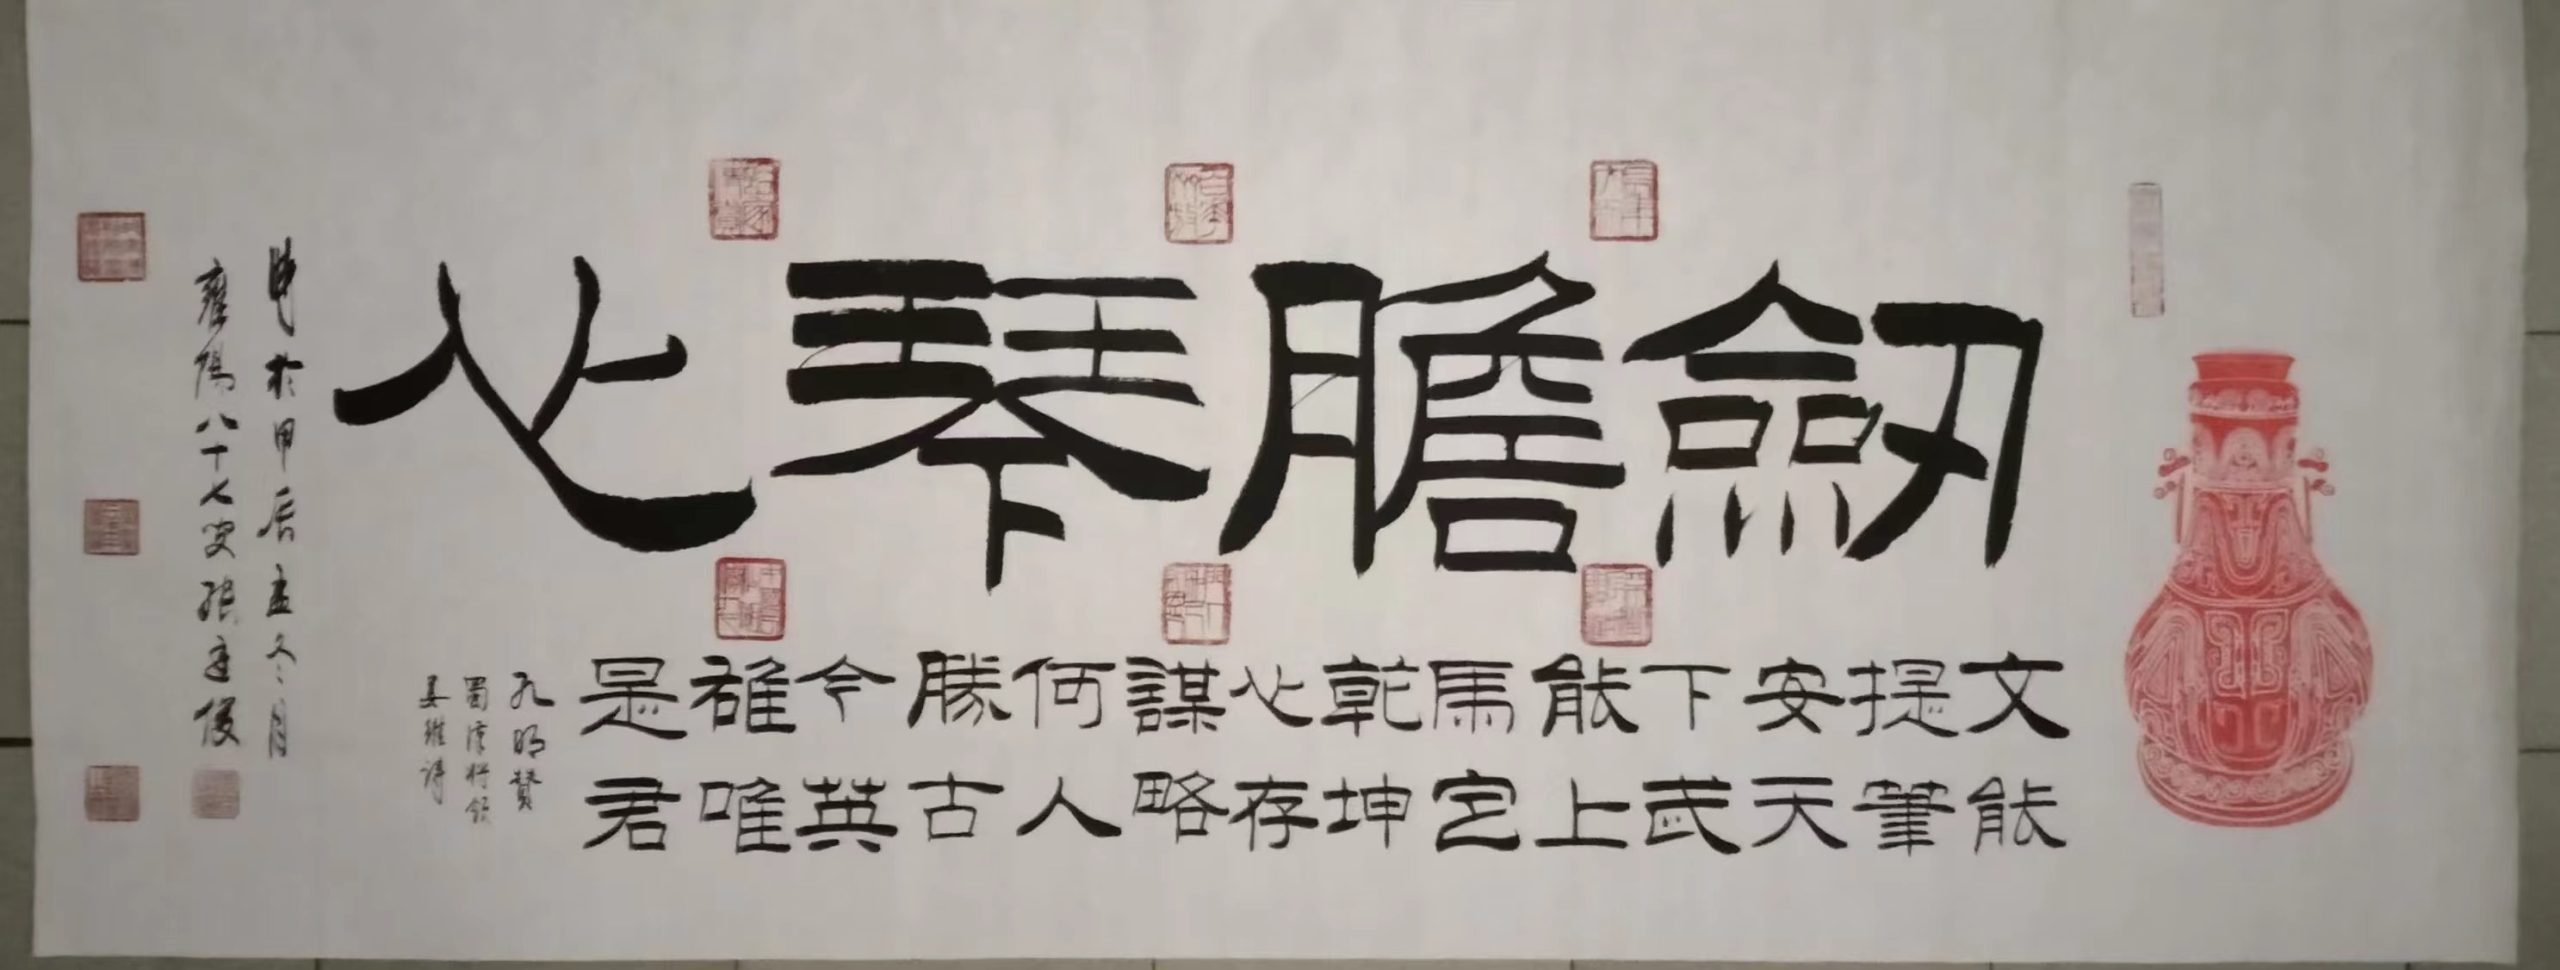 劒膽琴心
文能
提筆
安天
下武
能上
馬定
乾坤
心存
謀略
何人
勝古
今英
雄唯
是君
孔明贊
蜀漢將領
姜維詩
於甲辰孟冬月
雍陽八十七叟張俊